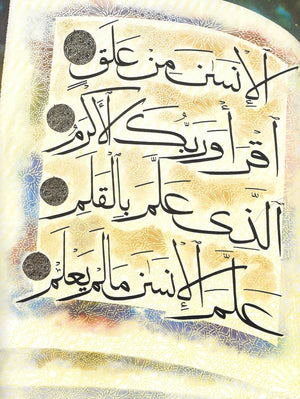 الإنسن من علق
اقرأ وربك الأكرم
الذى علم بالقلم
علم الإنسن مالم يعلم